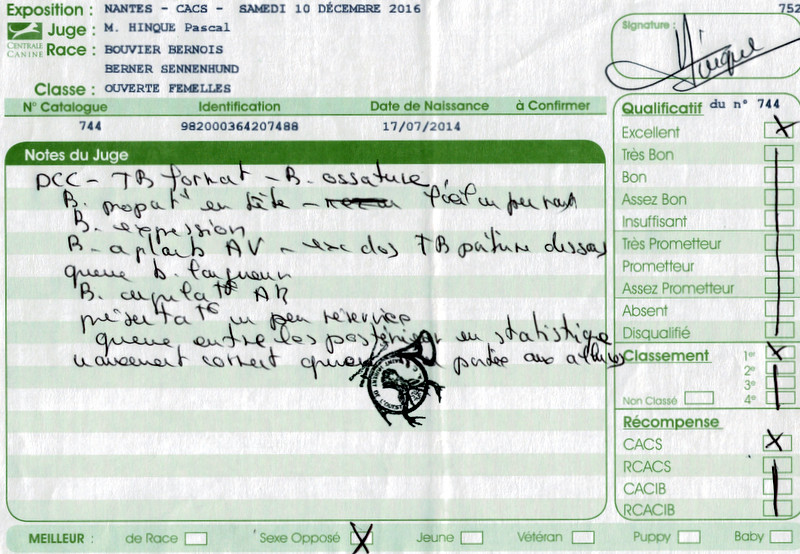 Exposition : NANTES - CACS - SAMEDI 10 DÉCEMBRE 2016
752
CENTRALE CANINE
Juge : M. HINQUE Pascal
Race : BOUVIER BERNOIS
BERNER SENNENHUND
Classe : OUVERTE FEMELLES
Signature :
Hinque
N° Catalogue Identification Date de Naissance à Confirmer
744 982000364207488 17/07/2014
Notes du Juge
DCC - TB format - B. ossature
B. propot° en tête - l'œil un peu rond
B. expression
B. aplomb AV - exc dos TB texture dessus
queue b. longueur
B. angulat° AR
présentat° un peu réservée
queue entre les postérieurs en statistique
mouvement correct portée aux allures
Qualificatif du n° 744
Excellent X
Très Bon
Bon
Assez Bon
Insuffisant
Très Prometteur
Prometteur
Assez Prometteur
Absent
Disqualifié
Classement 1er X
2e
3e
Non Classé 4e
Récompense
CACS X
RCACS
CACIB
RCACIB
MEILLEUR : de Race Sexe Opposé X Jeune Vétéran Puppy Baby